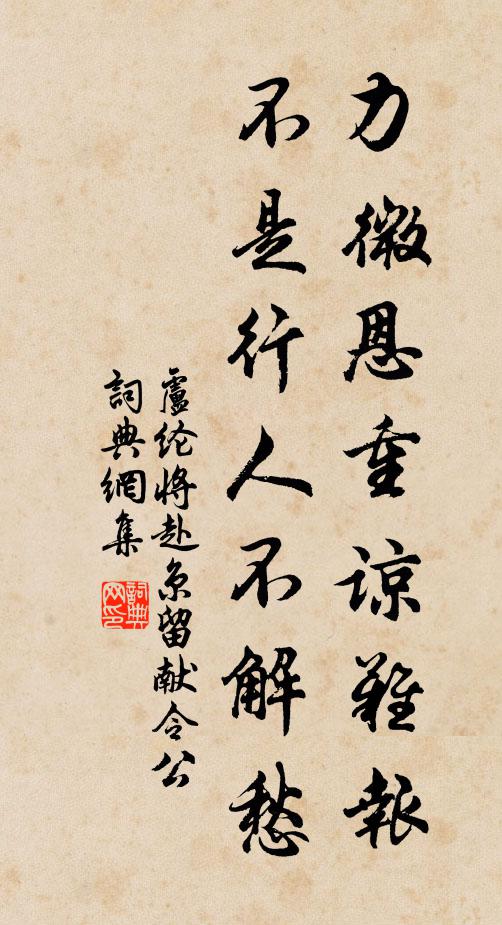 力微恩重諒難報
不是行人不解愁
盧纶将赴京留献令公
詞典網集
詞典网印